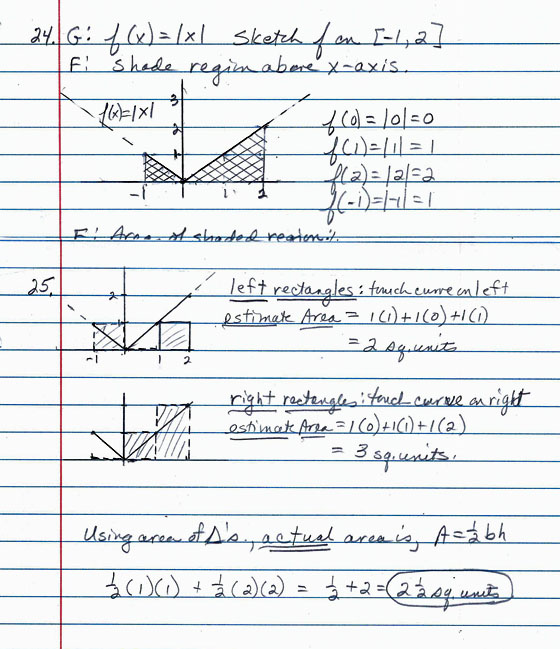 24. G: f(x)=|x| Sketch f on [-1,2]
F: Shade region above x-axis.
f(x)=|x|
3
2
1
-1 1 2
f(0)=|0|=0
f(1)=|1|=1
f(2)=|2|=2
f(-1)=|-1|=1
F: Area of shaded region
25. left rectangles: touch curve on left
2
estimate Area = 1(1)+1(0)+1(1)
-1 1 2
= 2 sq. units
right rectangles: touch curve on right
estimate Area = 1(0)+1(1)+1(2)
= 3 sq. units.
Using area of Δ's, actual area is, A=½bh
½(1)(1) + ½(2)(2) = ½+2= 2½ sq. units